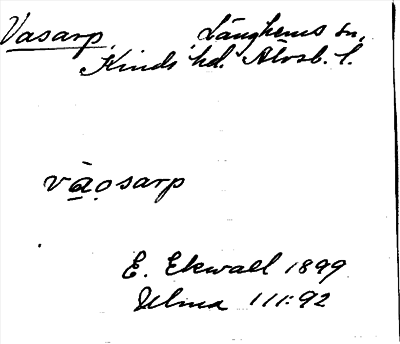 Vasarp. Länghems sn,
Kinds hd. Älvsb. l.
vàọsarp
E. Ekwall 1899
Ulma 111:92